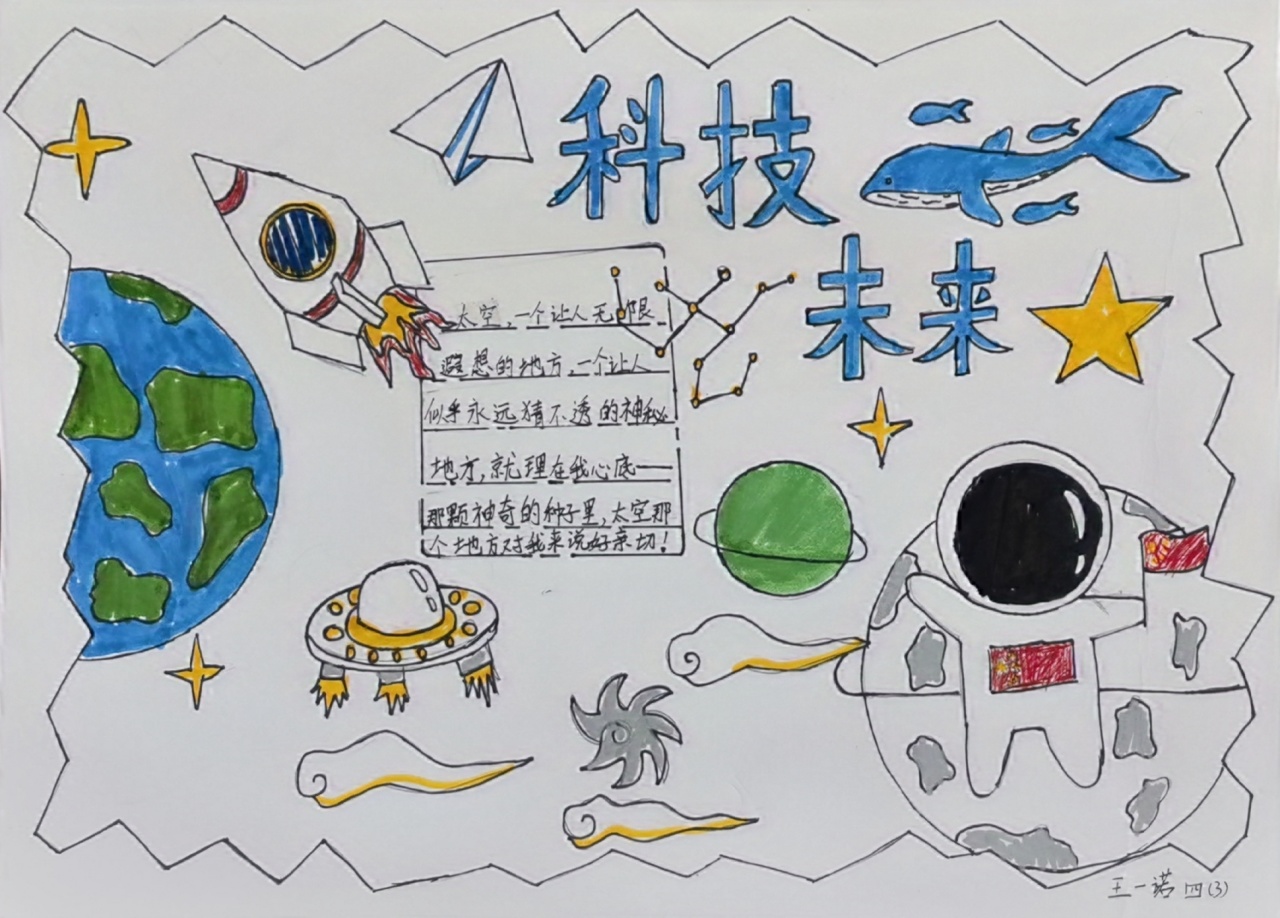 科技
未来
太空,一个让人无限
遐想的地方,一个让人
似乎永远猜不透的神秘
地方,就理在我心底一
那颗神奇的种子里,太空那
个地方对我来说好亲切!
王一诺 四(3)